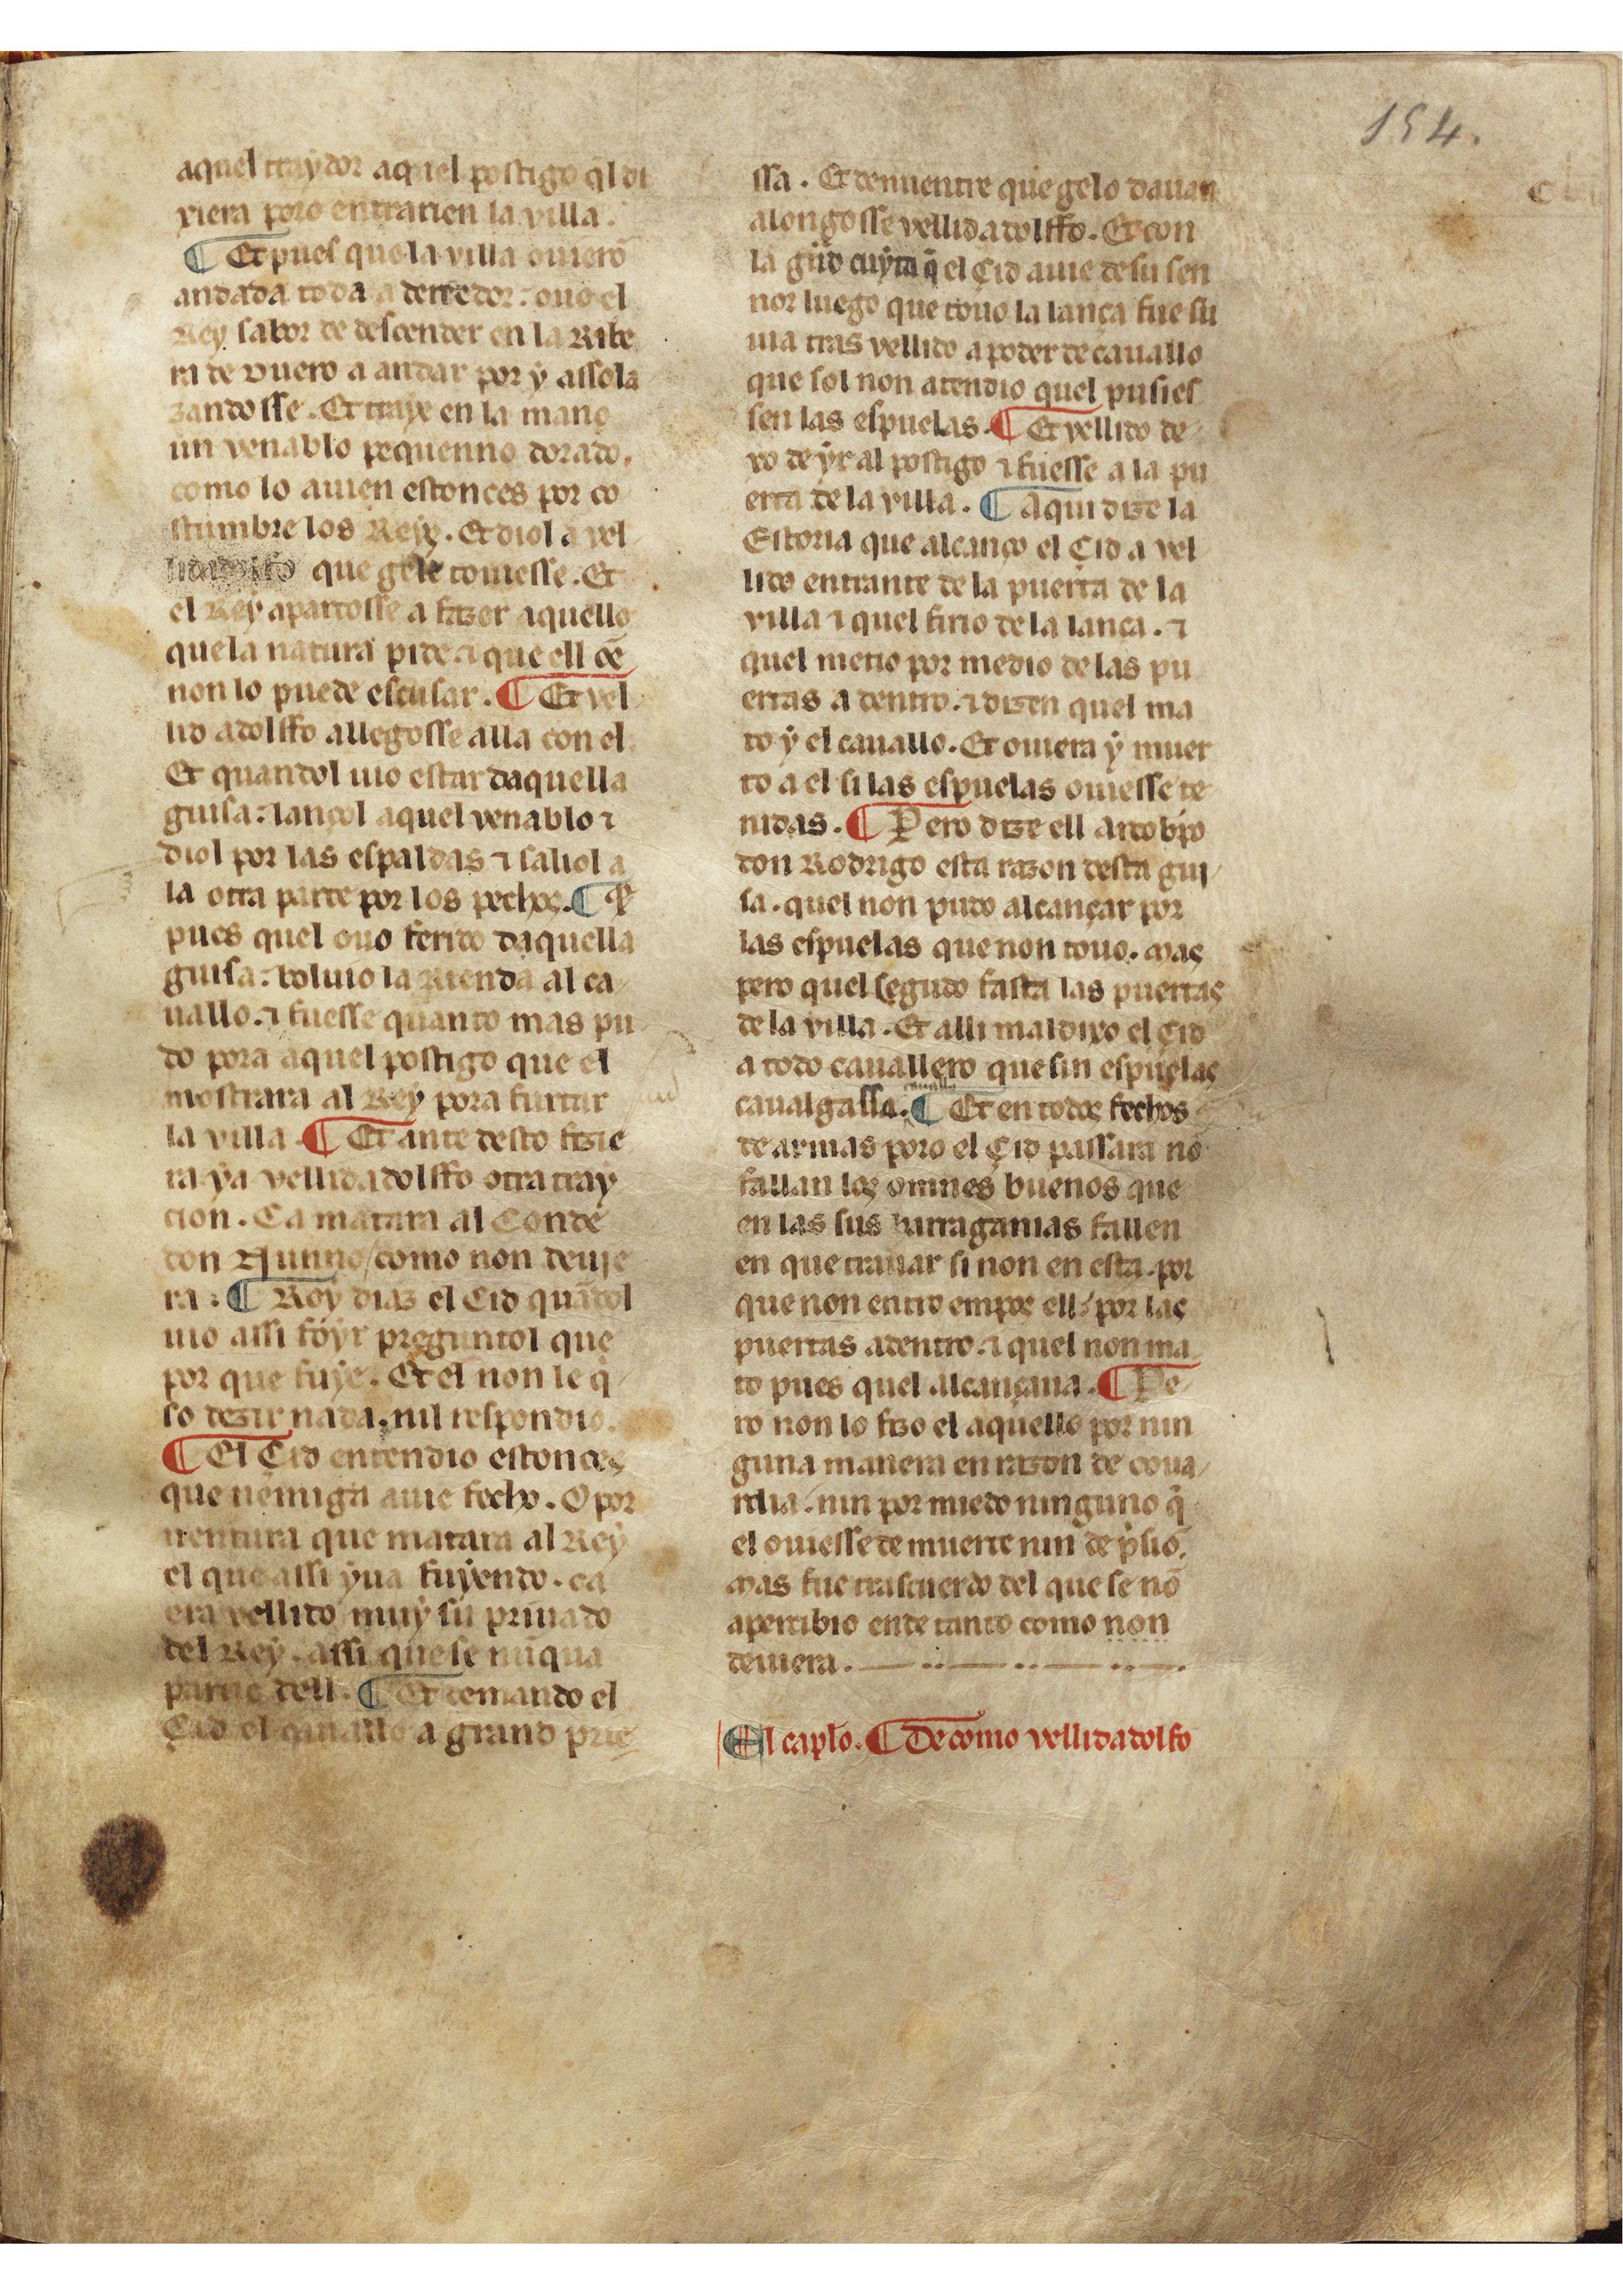 154.
aquel traydor aquel postigo q̃l di
xiera poro entrarien la villa.
¶ Et pues que la villa ouierõ
andada toda a derredor: ouo el
Rey sabor de descender en la Ribe
ra de Duero a andar por ẏ assola
zandosse. Et traye en la mano
un venablo pequenno dorado.
como lo auien estonces por co
stumbre los Reyes. Et diol a vel
lidadolffo que gele touiesse. Et
el Rey apartosse a fazer aquello
que la natura pide ⁊ que ell oẽ
non lo puede escusar. ¶ Et vel
lid adolffo allegosse alla con el
Et quandol uio estar daquella
guisa: lançol aquel venablo ⁊
diol por las espaldas ⁊ saliol a
la otra parte por los pechos. ¶ E
pues quel ouo ferido daquella
guisa: voluio la Rienda al ca
uallo. ⁊ fuesse quanto mas pu
do pora aquel postigo que el
mostrara al Rey pora furtar
la villa. ¶ Et ante desto fizie
ra ya vellidadolffo otra tray
cion. Ca matara al Conde
don Nunno/ como non deuie
ra: ¶ Roy diaz el Cid quãdol
uio assi foyr preguntol que
por que fuye. Et el non le q̃
so dezir nada. nil respondio.
¶ El Çid entendio estonces
que nemiga auie fecho. O por
uentura que matara al Rey
el que assi yua fuyendo. ca
era vellido muy su priuado
del Rey. assi que se nũqua
partie dell. ¶ Et demando el
Çid el cauallo a grand prie
ssa. Et demientre que gelo dauan
alongosse vellidadolffo. Et con
la grãd cuyta q̃ el Çid auie de su sen
nor luego que touo la lança fue su
uia tras vellido a poder de cauallo
que sol non atendio quel pusies
sen las espuelas. ¶ Et vellido de
xo de yr al postigo ⁊ fuesse a la pu
erta de la villa. ¶ Aqui dize la
Estoria que alcanço el Çid a vel
lido entrante de la puerta de la
villa ⁊ quel firio de la lança. ⁊
quel metio por medio de las pu
ertas a dentro. ⁊ dizen quel ma
to ẏ el cauallo. Et ouiera ẏ muer
to a el si las espuelas ouiesse te
nidas. ¶ Pero dize ell arçobp̃o
don Rodrigo esta razon desta gui
sa. quel non pudo alcançar por
las espuelas que non touo. mas
pero quel segudo fasta las puertas
de la villa. Et alli maldixo el Çid
a todo cauallero que sin espuelas
caualgasse. ¶ Et en todos fechos
de armas poro el Çid passara nõ
fallan los omnes buenos que
en las sus barraganias fallen
en que trauar si non en esta. por
que non entro empos ell por las
puertas adentro. ⁊ quel non ma
to pues quel alcançaua. ¶ Pe
ro non lo fizo el aquello por nin
guna manera en razon de coua
rdia. nin por miedo ninguno q̃
el ouiesse de muerte nin de p̃siõ.
mas fue trascuerdo del que se nõ
apercibio ende tanto como non
deuiera.
El cap̃lo. ¶ De como vellidadolfo